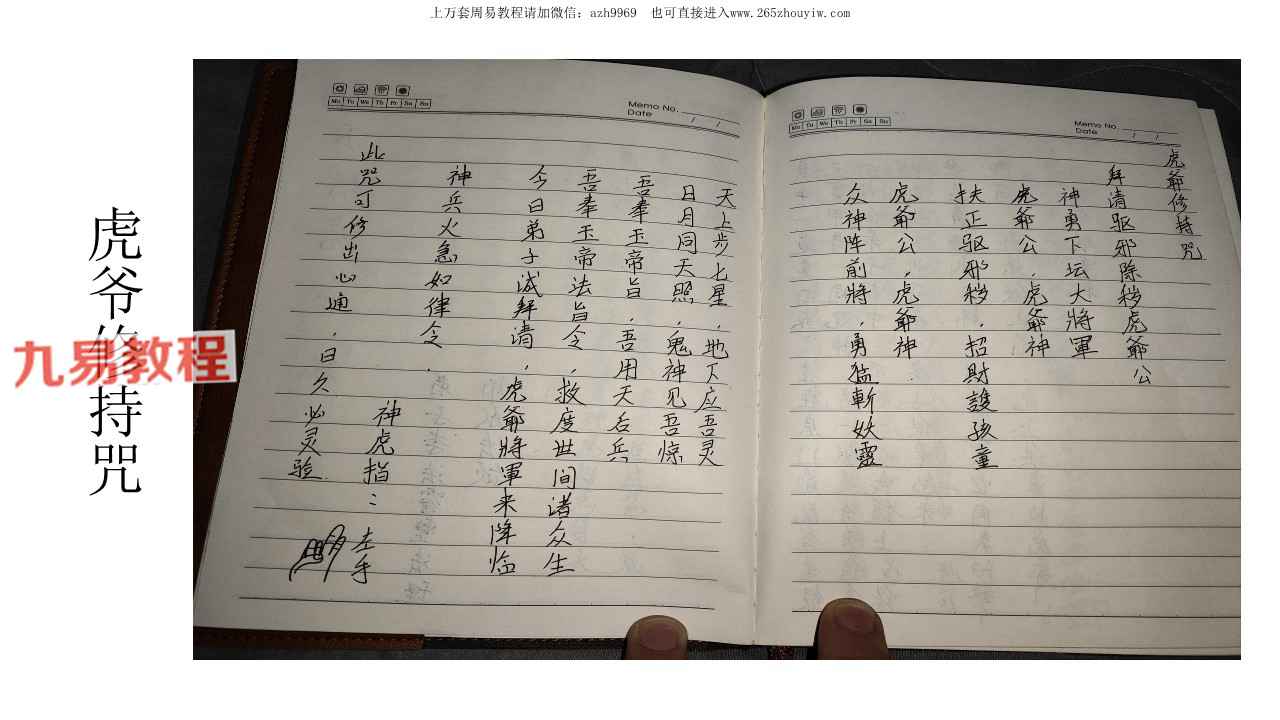 上万套周易教程请加微信：azh9969　也可直接进入www.265zhouyiw.com
虎爷修持咒
九易教程
Memo No.
Date / /
Mo Tu We Th Fr Sa Su
虎爺修持咒
拜清驱邪除秽虎爺公
神勇下坛大將軍
虎爺公，虎爺神
扶正驱邪秽，招財護孩童
虎爺公，虎爺神
众神阵前將，勇猛斬妖靈
Mo Tu We Th Fr Sa Su
Memo No.
Date / /
天上步七星，地下应吾灵
日月同天照，鬼神见吾惊
吾奉玉帝旨，吾用天后兵
吾奉玉帝法旨令，救度世间诸众生
今日弟子诚拜清，虎爺將軍来降临
神兵火急如律令。
神虎指：左手
此咒可修出心通，日久必灵验